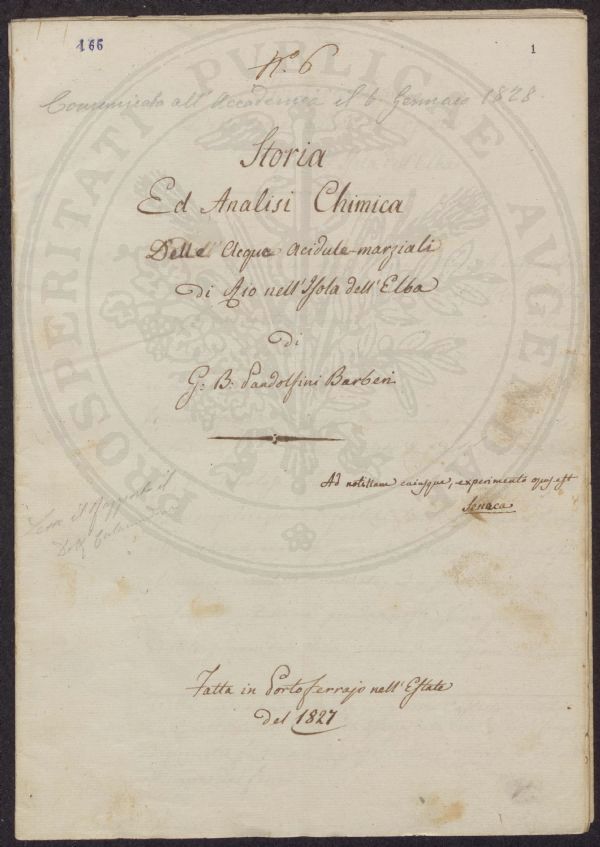 166
1
N.º 6
Comunicata all'Accademia il 6 Gennaio 1828.
Storia
Ed Analisi Chimica
Delle Acque Acidule-marziali
di Rio nell'Isola dell'Elba
di
G: B: Pandolfini Barberi
Ad notitiam cuiusque, experimento opus est
Seneca
il Rapporto il
Fatta in Portoferrajo nell'Estate
del 1827
PROSPERITATI PUBLICAE AUGENDAE